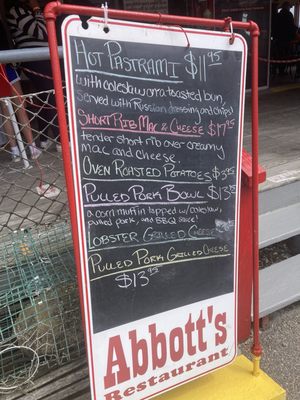 Hot Pastrami $11.95
with coleslaw on a toasted bun
served with Russian dressing and chips
Short Rib Mac & Cheese $17.95
tender short rib over creamy
mac and cheese.
Oven Roasted Potatoes $3.95
Pulled Pork Bowl $13.95
a corn muffin topped w/ coleslaw,
pulled pork, and BBQ sauce!
Lobster Grilled Cheese
Pulled Pork Grilled Cheese
$13.95
Abbott's
Restaurant